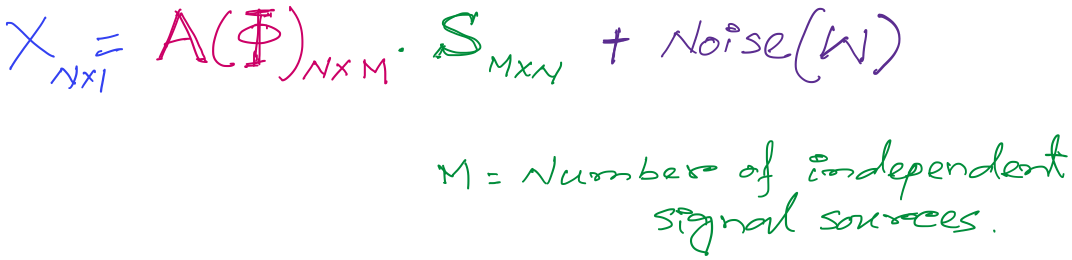 X_{N×1} = A(Φ)_{N×M} · S_{M×N} + Noise(W)
M = Number of independent
signal sources.